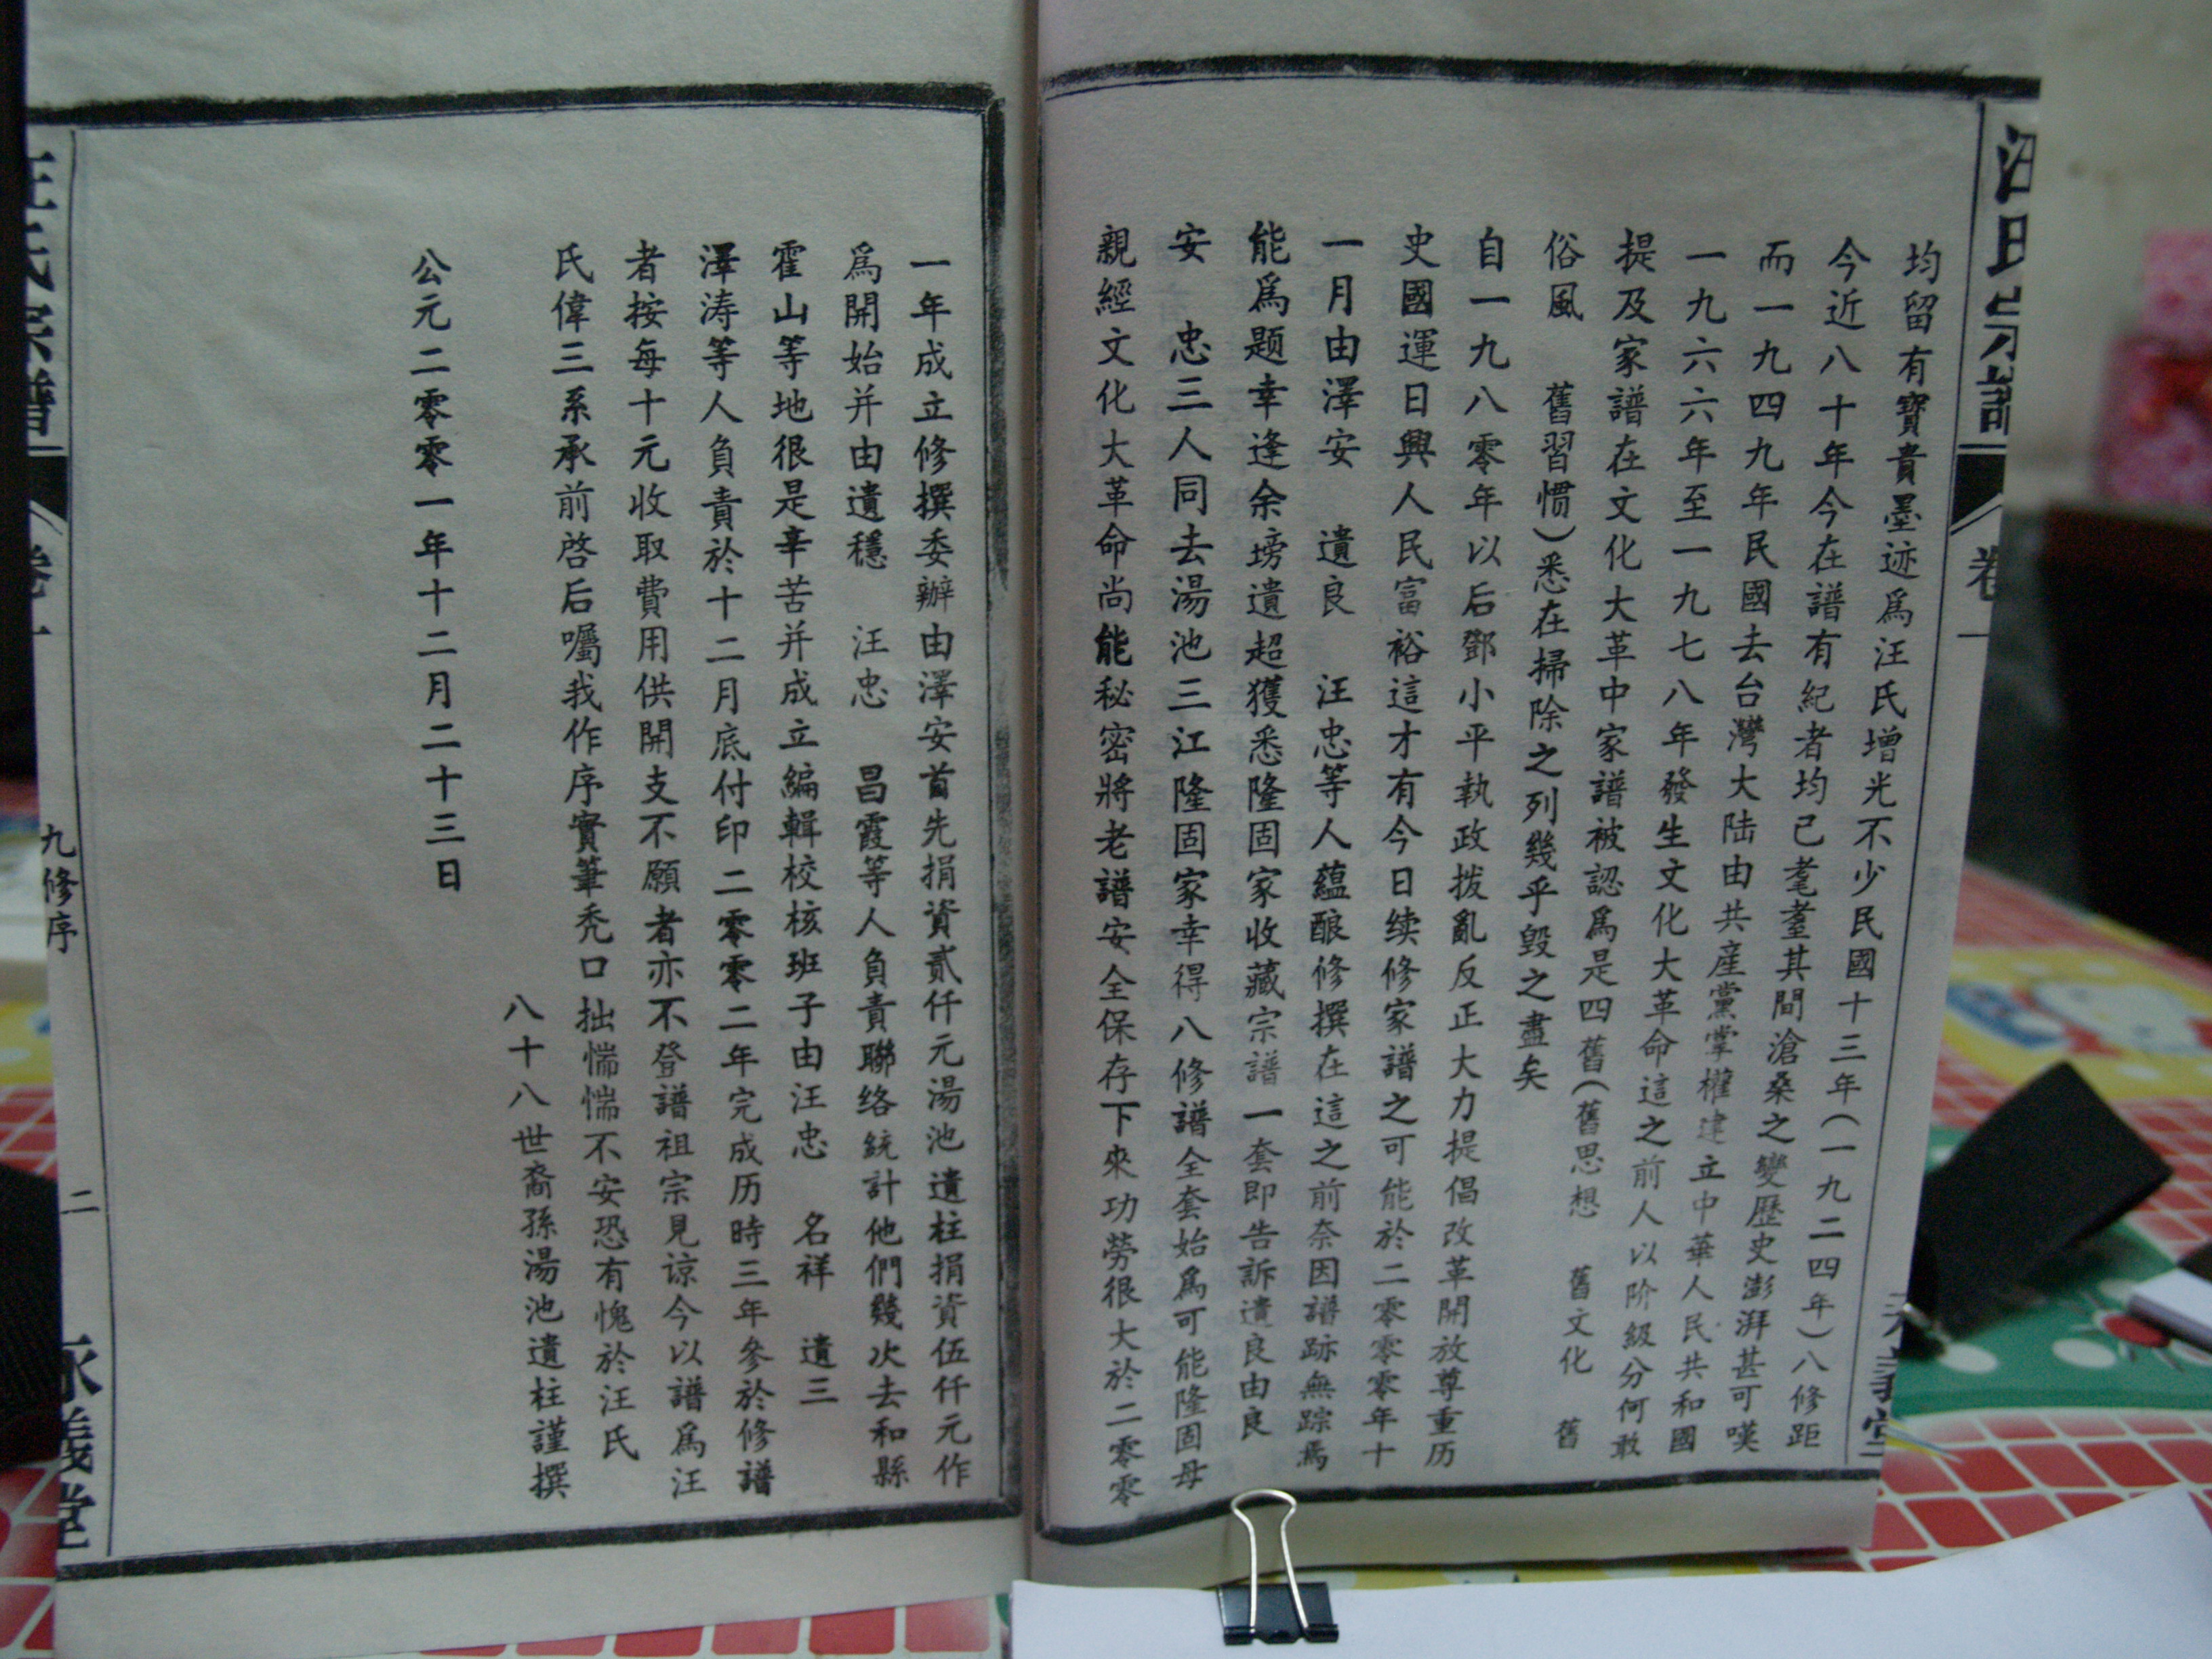 汪氏宗譜
卷一
均留有寶貴墨迹爲汪氏增光不少民國十三年(一九二四年)八修距
今近八十年今在譜有紀者均已耄耋其間滄桑之變歷史澎湃甚可嘆
而一九四九年民國去台灣大陆由共產黨掌權建立中華人民共和國
一九六六年至一九七八年發生文化大革命這之前人以阶級分何敢
提及家譜在文化大革中家譜被認爲是四舊(舊思想 舊文化 舊
俗風 舊習慣)悉在掃除之列幾乎毀之盡矣
自一九八零年以后鄧小平執政拨亂反正大力提倡改革開放尊重历
史國運日興人民富裕這才有今日续修家譜之可能於二零零零年十
一月由澤安 遺良 汪忠等人蘊酿修撰在這之前奈因譜跡無踪焉
能爲题幸逢余塝遺超獲悉隆固家收藏宗譜一套即告訴遺良由良
安 忠三人同去湯池三江隆固家幸得八修譜全套始爲可能隆固母
親經文化大革命尚能秘密將老譜安全保存下來功勞很大於二零零
一年成立修撰委辦由澤安首先捐資贰仟元湯池遺柱捐資伍仟元作
爲開始并由遺穩 汪忠 昌霞等人負責聯络統計他們幾次去和縣
霍山等地很是辛苦并成立編輯校核班子由汪忠 名祥 遺三
澤涛等人負責於十二月底付印二零零二年完成历時三年參於修譜
者按每十元收取費用供開支不願者亦不登譜祖宗見谅今以譜爲汪
氏偉三系承前啓后囑我作序實筆秃口拙惴惴不安恐有愧於汪氏
八十八世裔孫湯池遺柱謹撰
公元二零零一年十二月二十三日
汪氏宗譜
卷一
九修序
二
永義堂